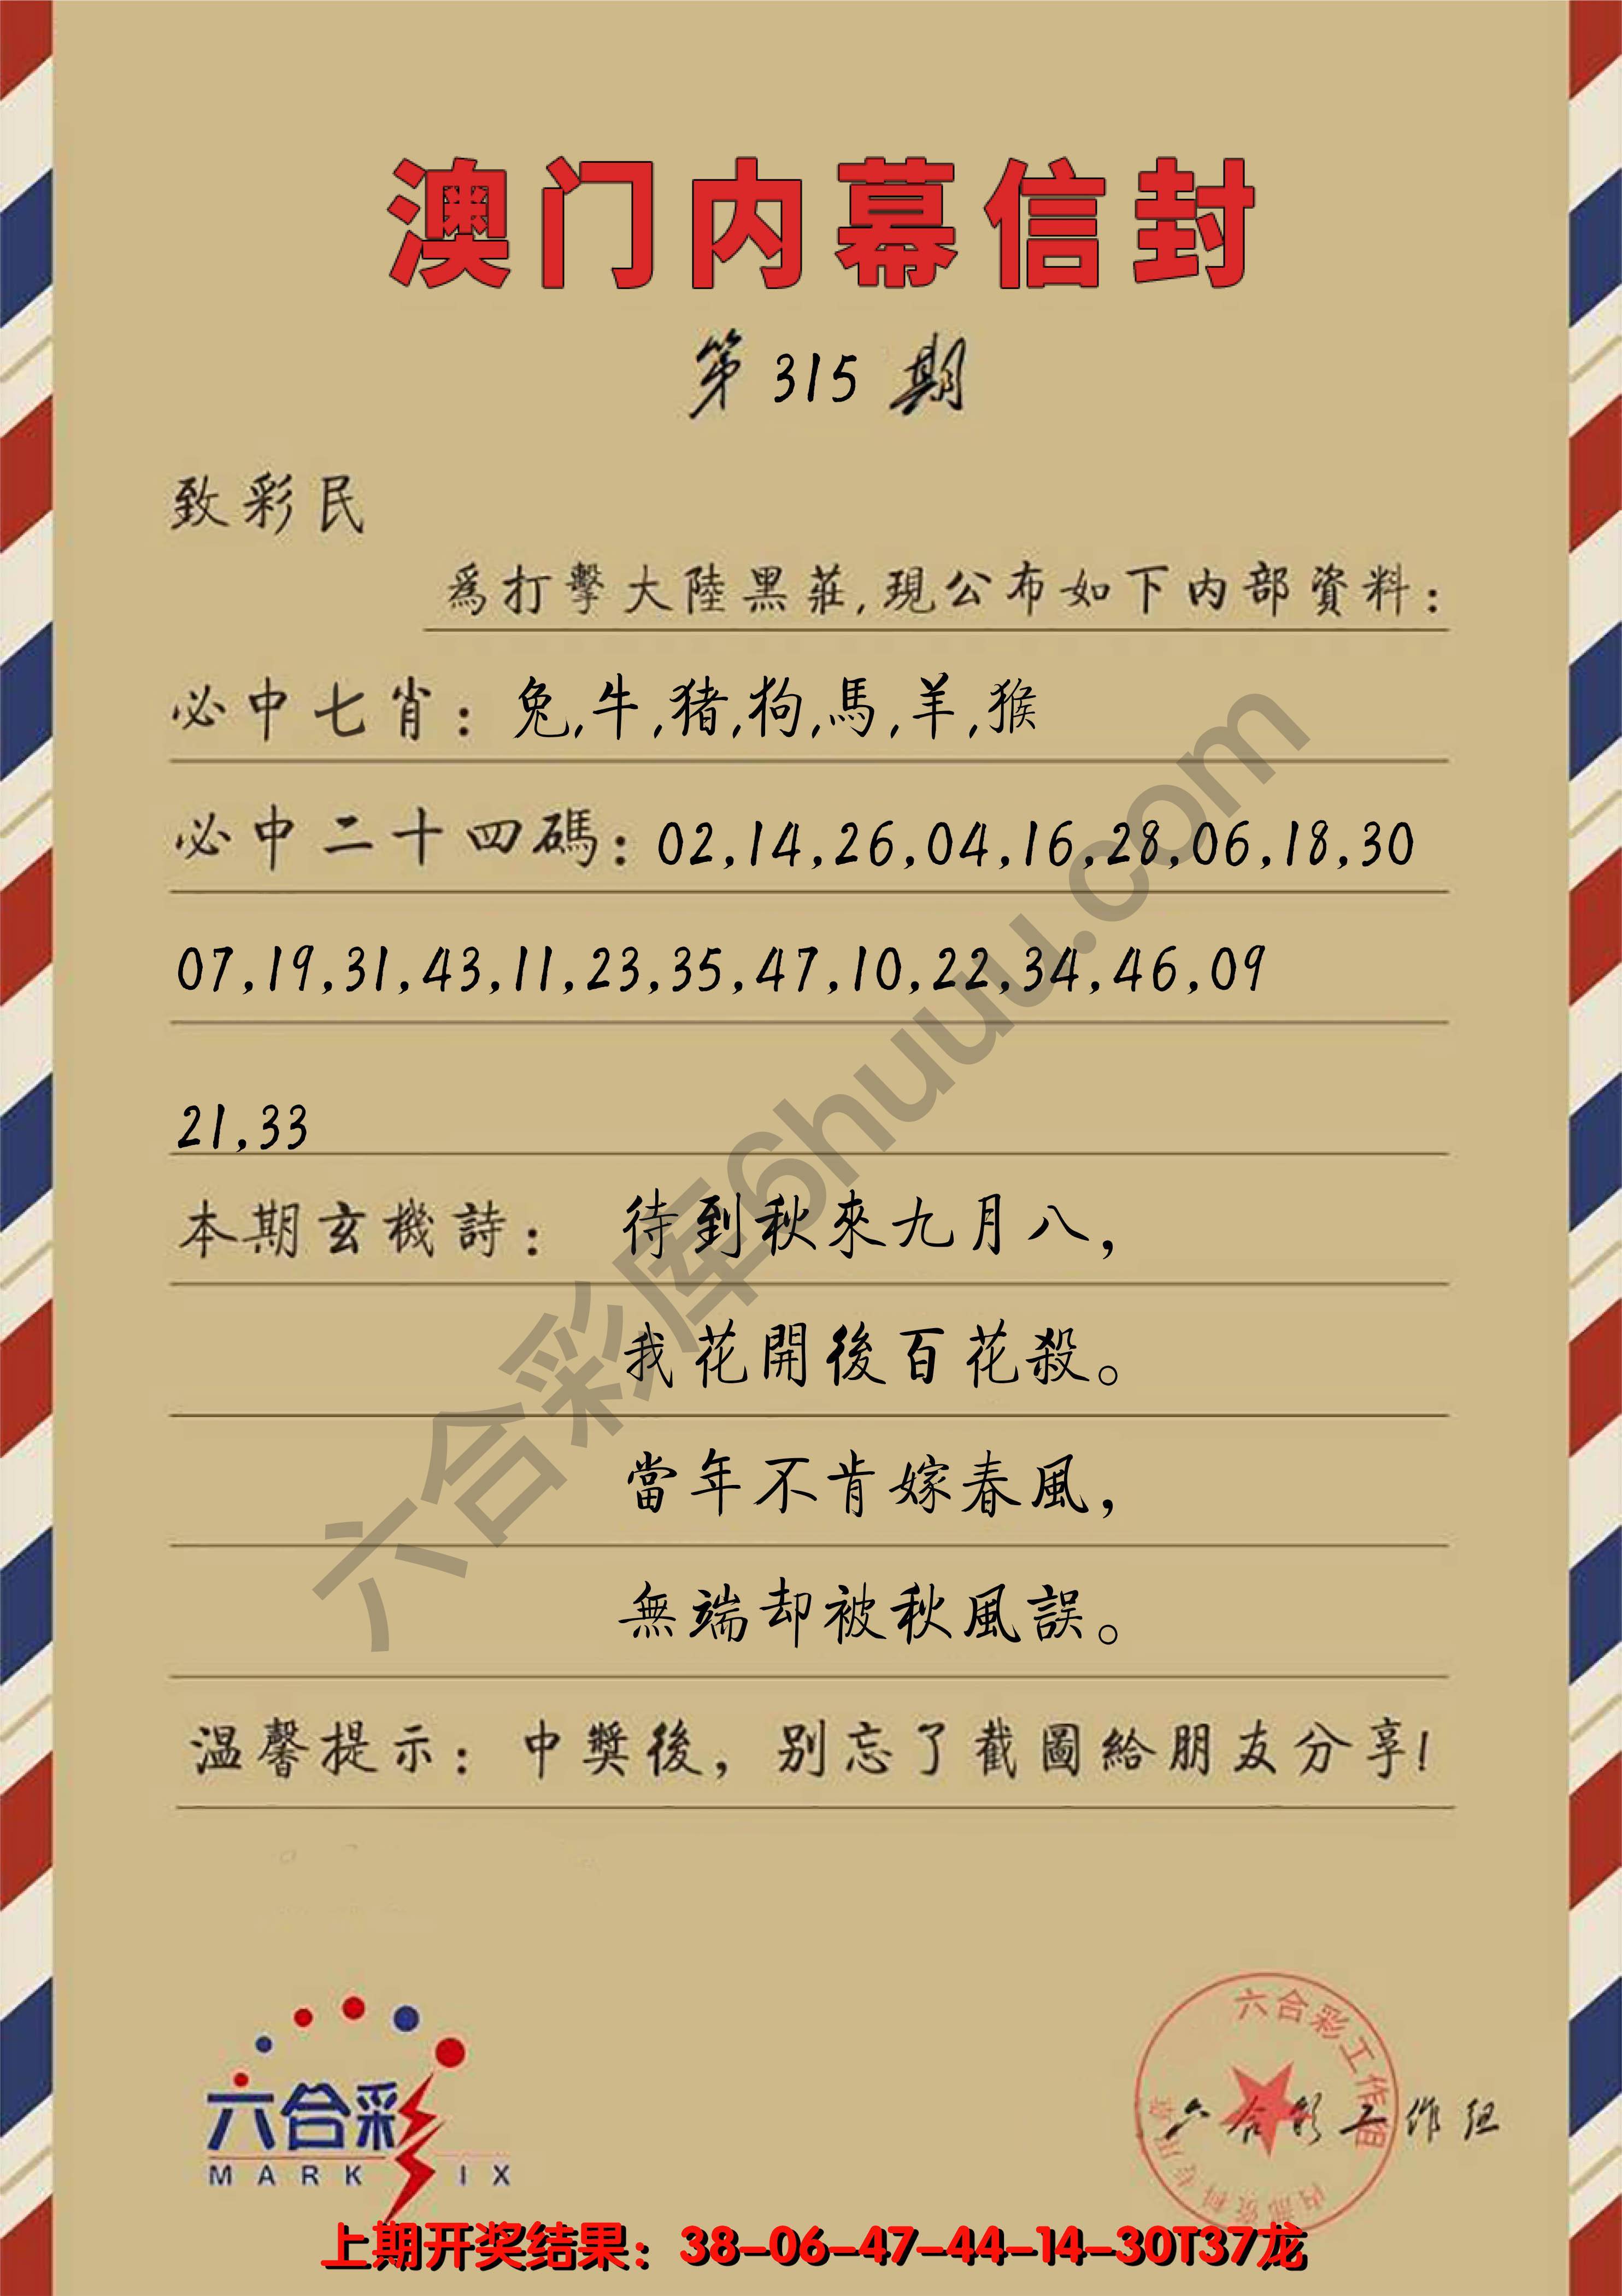 澳门内幕信封
第 315 期
致彩民
為打擊大陸黑莊,現公布如下内部資料:
必中七肖: 兔,牛,猪,狗,馬,羊,猴
必中二十四碼: 02,14,26,04,16,28,06,18,30
07,19,31,43,11,23,35,47,10,22,34,46,09
21,33
本期玄機詩: 待到秋來九月八,
我花開後百花殺。
當年不肯嫁春風,
無端却被秋風誤。
温馨提示: 中獎後, 别忘了截圖給朋友分享!
六合彩
MARK IX
六合彩工作组
内部资料专用章
六合彩工作组
上期开奖结果: 38-06-47-44-14-30T37龙
六合彩库6huuu.com